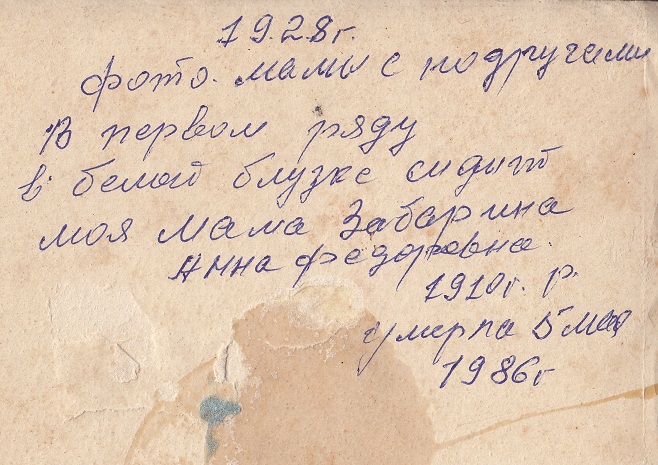 1928г.
фото. мамы с подругами
В первом ряду
в белой блузке сидит
моя мама Забарина
Анна Федоровна.
1910г. р.
умерла 5 мая
1986г